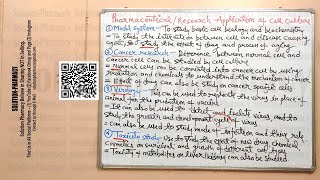 SOLUTION-PHARMACY
Solution-Pharmacy Believe in Sharing NOT in Selling.
Pharmaceutical/Research Application of cell culture
① Model system - To study basic cell biology and biochemistry
- To study the interaction between cell and disease causing
agent, to study the effect of drug and process of ageing.
② Cancer research - Difference between normal cell and
cancer cell can be studied by cell culture
- Normal cell can be converted into cancer cell by using
radiation and chemicals to understand the mechanism of cancer
- Effect of drug can also be study on cancer specific cell
③ Virology - This can be used to replicate the virus in place of
animal for the production of vaccine.
- It can also be used to detect and isolate virus, and to
study the growth and development cycle of virus.
- can also be used to study mode of infection and their role
④ Toxicity study - Use to study the effect of new drug, chemical,
Cosmetics on survival and growth of different cell type
- Toxicity of metabolites on liver, kidney can also be studied